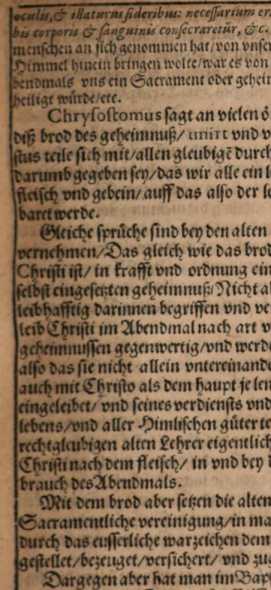 oculis, & illaturus sideribus: necessarium er
bis corporis & sanguinis consecraretur, &c.
menschen an sich genommen hat/von vnser
Himmel hinein bringen wolte/war es von
bendmals vns ein Sacrament oder geheim
heiligt würde/etc.
Chrysostomus sagt an vielen ö
diß brod des geheimnuß/ vnirt vnd v
stus teile sich mit/allen gleubigē durch
darumb gegeben sey/das wir alle ein l
fleisch vnd gebein/auff das also der le
baret werde.
Gleiche sprüche sind bey den alten
vernehmen/Das gleich wie das brod
Christi ist/ in krafft vnd ordnung ein
selbst eingesetzten geheimnuß/Nicht al
leibhafftig darinnen begriffen vnd ve
leib Christi im Abendmal nach art v
geheimnussen gegenwertig/vnd werde
also das sie nicht allein vntereinande
auch mit Christo als dem haupt je len
eingeleibet/ vnd seines verdiensts vnd
lebens/vnd aller Himlischen güter te
rechtgleubigen alten Lehrer eigentlich
Christi nach dem fleisch/ in vnd bey d
brauch des Abendmals.
Mit dem brod aber setzen die alten
Sacramentliche vereinigung/in ma
durch das eusserliche warzeichen dem
gestellet/bezeuget/versichert/ vnd zug
Dargegen aber hat man im Bap